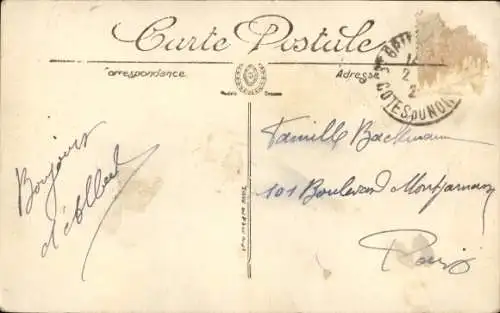 Carte Postale
Correspondance
Adresse
COTES DU NORD
Bonjours
d'
Famille Backmann
101 Boulevard Montparnasse
Paris